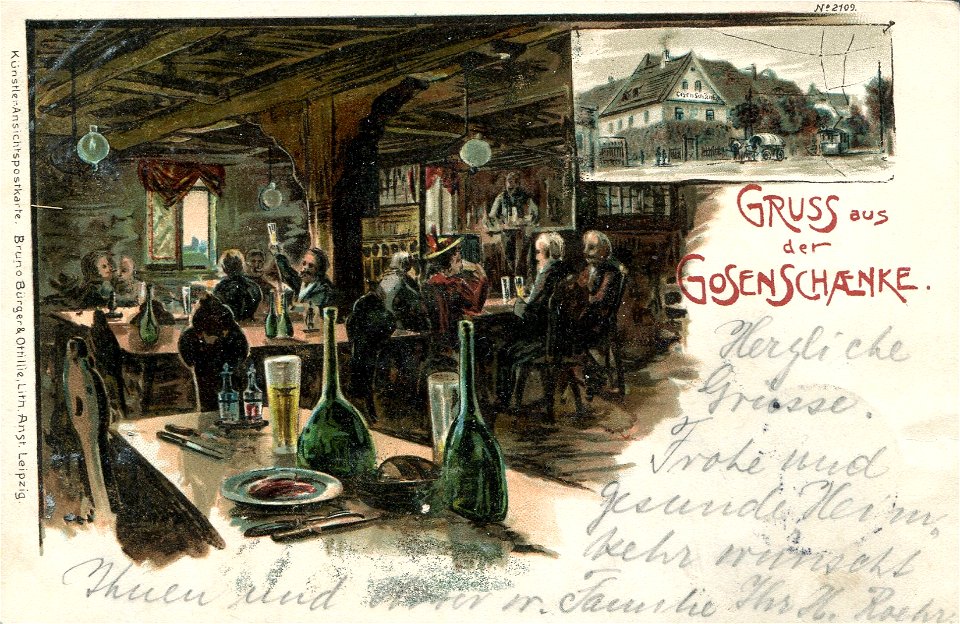 Nº 2109.
Künstler-Ansichtspostkarte. Bruno Bürger & Ottilie, Lith. Anst. Leipzig.
GOSENSCHÄNKE
GRUSS aus
der
GOSENSCHÆNKE.
Herzliche
Grüsse.
Frohe und
gesunde Heim,
kehr wünscht
Ihnen und w. Familie Ihr H. Roehr.